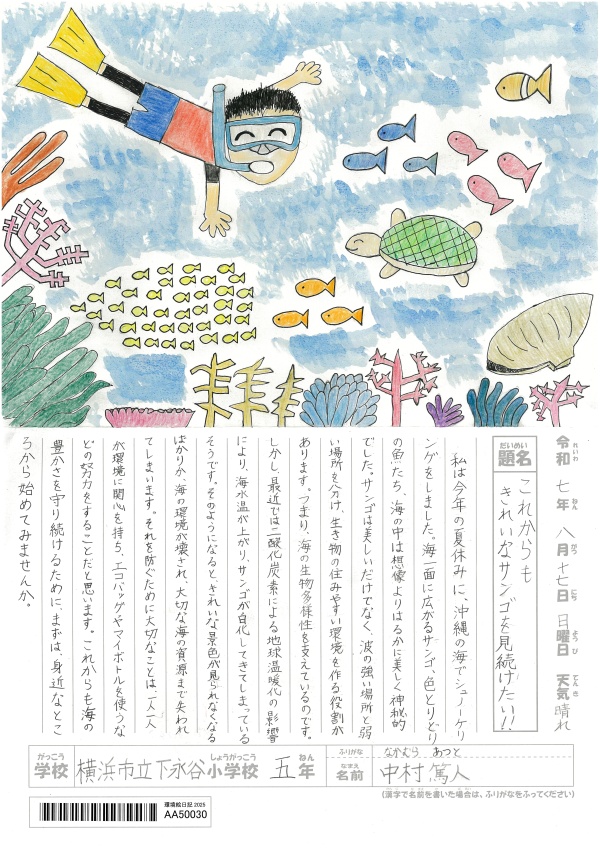 令和七年八月十七日 日曜日 天気 晴れ
れいわ ねん がつ にち ようび てんき
だいめい
題名
これからも
きれいなサンゴを見続けたい!!
私は今年の夏休みに、沖縄の海でシュノーケリ
ングをしました。海一面に広がるサンゴ、色とりどり
の魚たち、海の中は想像よりはるかに美しく神秘的
でした。サンゴは美しいだけでなく、波の強い場所と弱
い場所を分け、生き物の住みやすい環境を作る役割が
あります。つまり、海の生物多様性を支えているのです。
しかし、最近では二酸化炭素による地球温暖化の影響
により、海水温が上がり、サンゴが白化してきてしまっている
そうです。そのようになると、きれいな景色が見られなくなる
ばかりか、海の環境が壊され、大切な海の資源まで失われ
てしまいます。それを防ぐために大切なことは、一人一人
が環境に関心を持ち、エコバッグやマイボトルを使うな
どの努力をすることだと思います。これからも海の
豊かさを守り続けるために、まずは、身近なとこ
ろから始めてみませんか。
がっこう しょうがっこう ねん
学校 横浜市立下永谷小学校 五年
ふりがな なかむら あつと
なまえ
名前 中村 篤人
(漢字で名前を書いた場合は、ふりがなをふってください)
環境絵日記 2025
AA50030